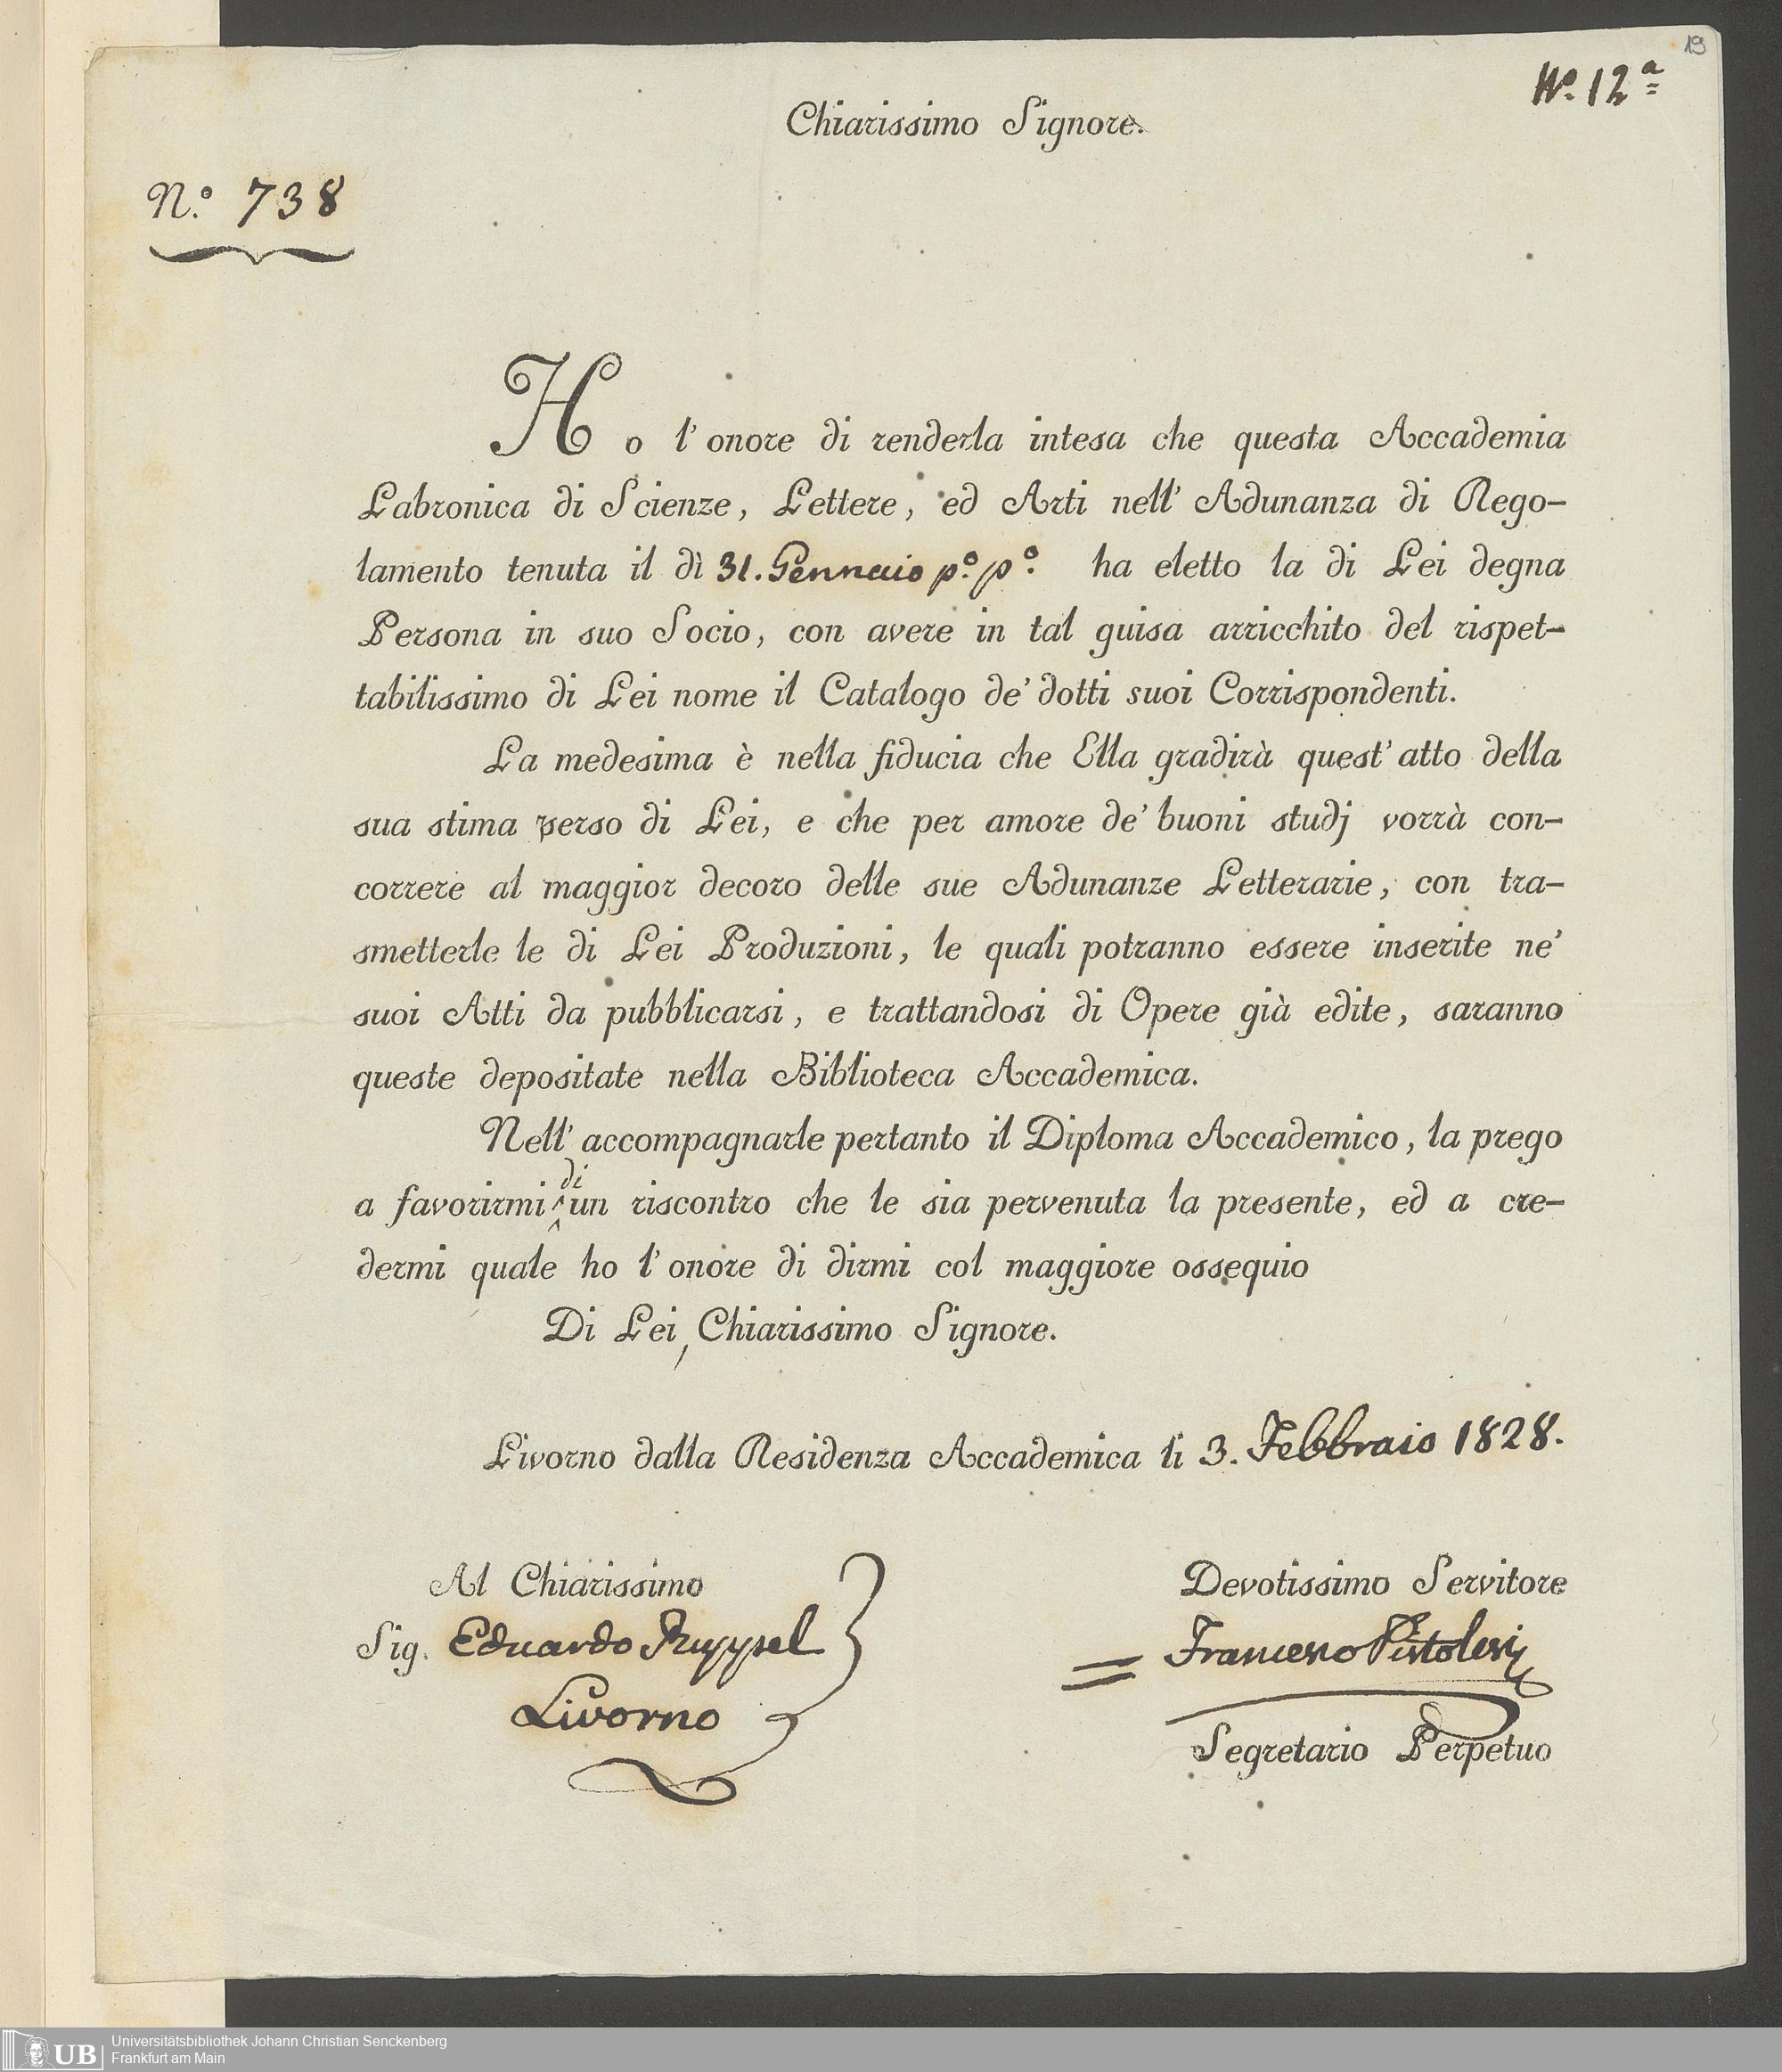 19
No. 12a
Chiarissimo Signore.
N.o 738
Ho l'onore di renderla intesa che questa Accademia
Labronica di Scienze, Lettere, ed Arti nell' Adunanza di Rego-
lamento tenuta il dì 31. Gennaio p.o p.o ha eletto la di Lei degna
Persona in suo Socio, con avere in tal guisa arricchito del rispet-
tabilissimo di Lei nome il Catalogo de' dotti suoi Corrispondenti.
La medesima è nella fiducia che Ella gradirà quest' atto della
sua stima verso di Lei, e che per amore de' buoni studj vorrà con-
correre al maggior decoro delle sue Adunanze Letterarie, con tra-
smetterle le di Lei Produzioni, le quali potranno essere inserite ne'
suoi Atti da pubblicarsi, e trattandosi di Opere già edite, saranno
queste depositate nella Biblioteca Accademica.
Nell' accompagnarle pertanto il Diploma Accademico, la prego
a favorirmi di un riscontro che le sia pervenuta la presente, ed a cre-
dermi quale ho l'onore di dirmi col maggiore ossequio
Di Lei, Chiarissimo Signore.
Livorno dalla Residenza Accademica li 3. Febbraio 1828.
Al Chiarissimo
Sig. Eduardo Ruppel
Livorno
Devotissimo Servitore
Francesco Pistolesi
Segretario Perpetuo
UB
Universitätsbibliothek Johann Christian Senckenberg
Frankfurt am Main